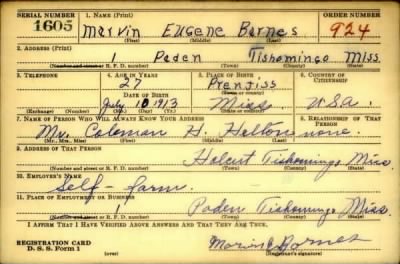 SERIAL NUMBER 1. NAME (Print) ORDER NUMBER
1605 Marvin Eugene Barnes 924
(First) (Middle) (Last)
2. ADDRESS (Print)
1 Paden Tishomingo Miss.
(Number and street or R. F. D. number) (Town) (County) (State)
3. TELEPHONE 4. AGE IN YEARS 5. PLACE OF BIRTH 6. COUNTRY OF CITIZENSHIP
27 Prentiss
DATE OF BIRTH (Town or county)
July 10 1913 Miss. USA.
(Exchange) (Number) (Mo.) (Day) (Yr.) (State or country)
7. NAME OF PERSON WHO WILL ALWAYS KNOW YOUR ADDRESS 8. RELATIONSHIP OF THAT PERSON
Mr. Coleman H. Holton none.
(Mr., Mrs., Miss) (First) (Middle) (Last)
9. ADDRESS OF THAT PERSON
Tishomingo Miss.
(Number and street or R. F. D. number) (Town) (County) (State)
10. EMPLOYER'S NAME
Self - farm.
11. PLACE OF EMPLOYMENT OR BUSINESS
1 Paden Tishomingo Miss.
(Number and street or R. F. D. number) (Town) (County) (State)
I AFFIRM THAT I HAVE VERIFIED ABOVE ANSWERS AND THAT THEY ARE TRUE.
REGISTRATION CARD
D. S. S. Form 1 (over) Marvin E Barnes
(Registrant's signature)